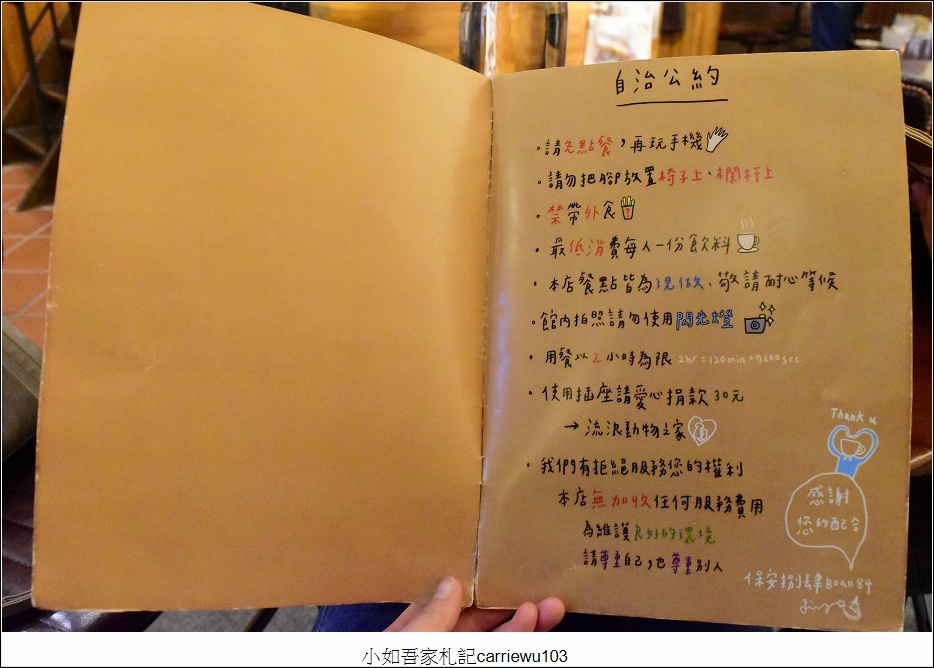 自治公約
•請先點餐，再玩手機
•請勿把腳放置椅子上、欄杆上
•禁帶外食
•最低消費每人一份飲料
•本店餐點皆為現做、敬請耐心等候
•館內拍照請勿使用閃光燈
•用餐以2小時為限 2hr=120min=7200sec
•使用插座請愛心捐款30元
→流浪動物之家
•我們有拒絕服務您的權利
本店無加收任何服務費用
為維護良好的環境
請尊重自己，也尊重別人
Thank u
感謝
您的配合
保安捌肆Boan84
小如吾家札記carriewu103